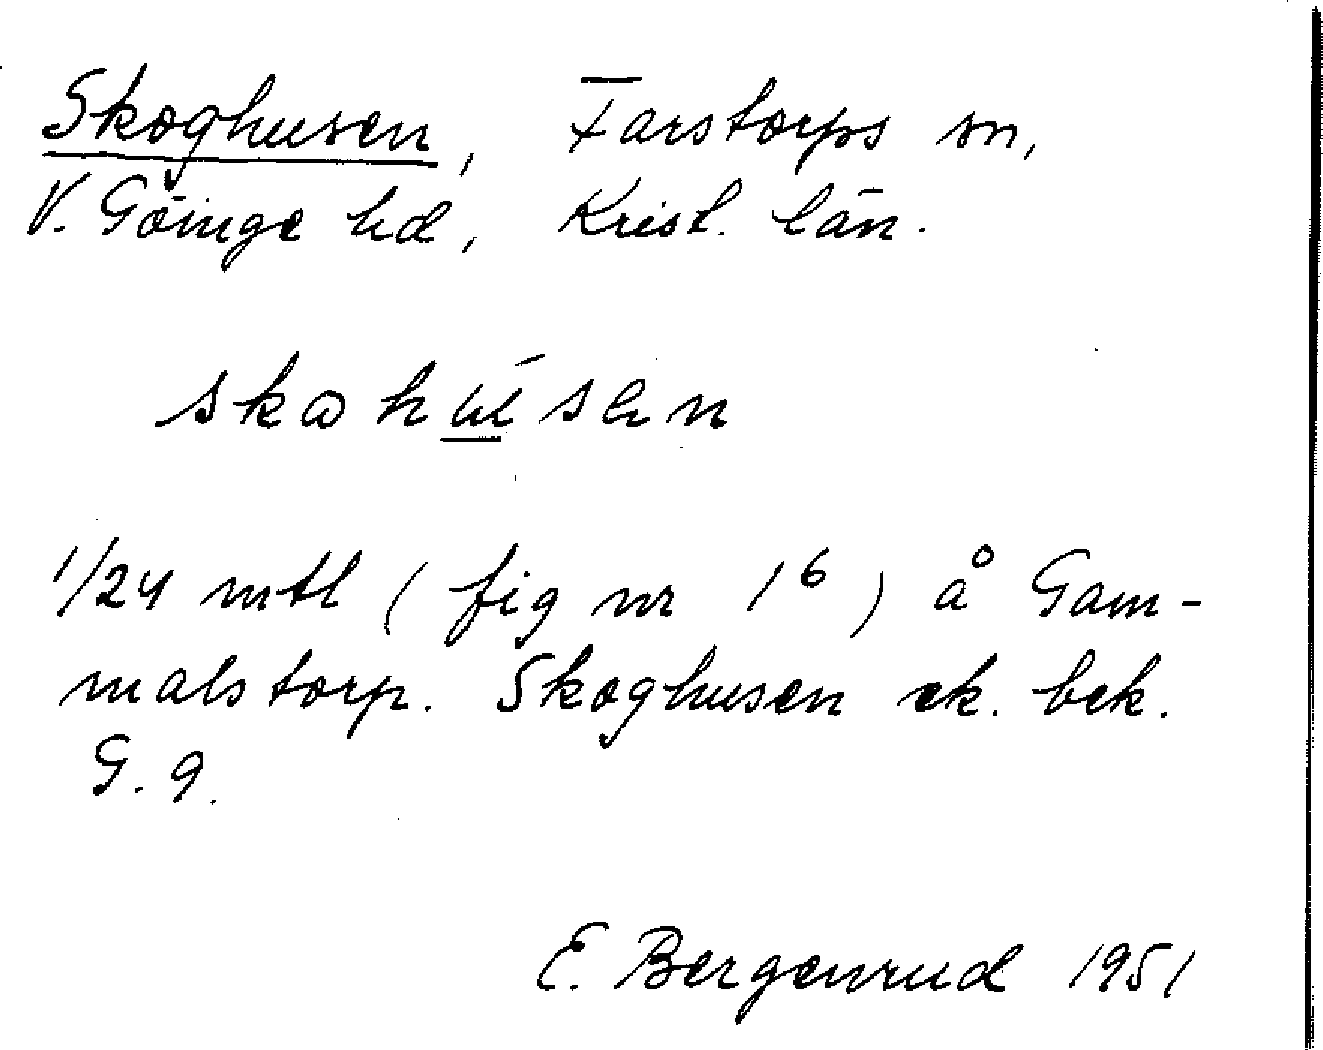 Skoghusen, Farstorps sn,
V. Göinge hd, Krist. län.
1/24 mtl (fig nr 1⁶) å Gam-
malstorp. Skoghusen ek. bek.
G. 9.
E. Bergenrud 1951